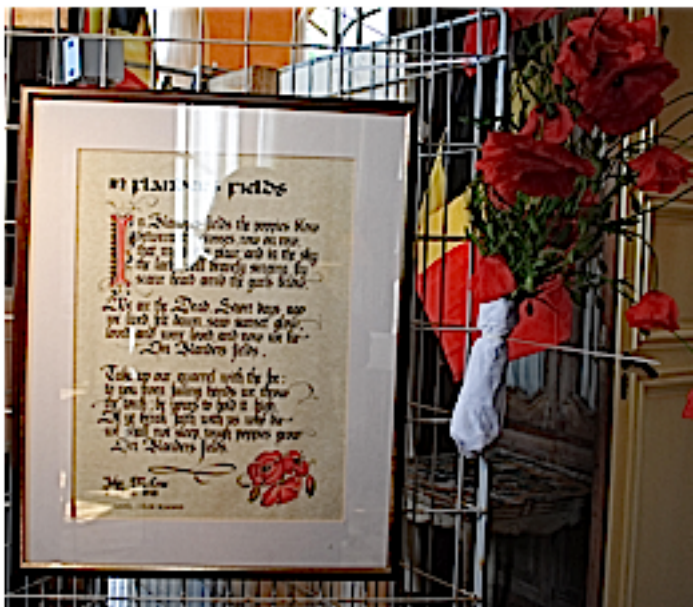 In Flanders Fields
In Flanders fields the poppies blow
Between the crosses, row on row,
That mark our place; and in the sky
the larks still bravely singing, fly
scarce heard amid the guns below.
We are the Dead. Short days ago
we lived, felt dawn, saw sunset glow,
loved and were loved and now we lie
In Flanders fields.
Take up our quarrel with the foe:
to you from failing hands we throw
the torch; be yours to hold it high.
If ye break faith with us who die
we shall not sleep, though poppies grow
In Flanders fields.
John McCrae